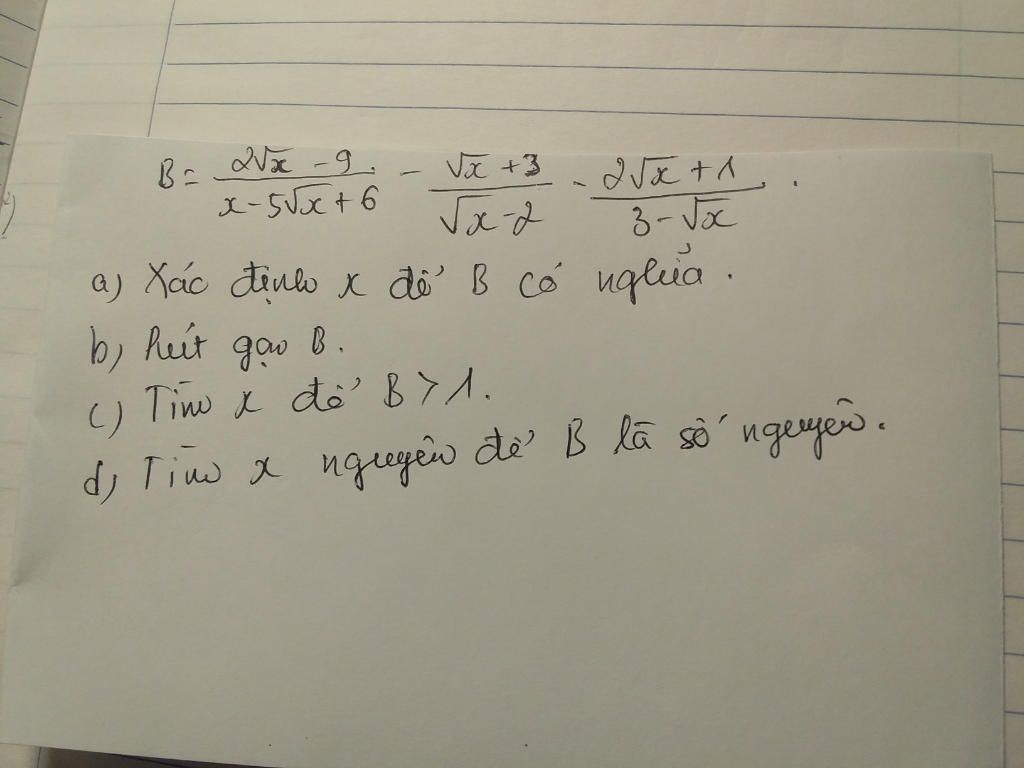 B = \frac{2\sqrt{x} - 9}{x - 5\sqrt{x} + 6} - \frac{\sqrt{x} + 3}{\sqrt{x} - 2} - \frac{2\sqrt{x} + 1}{3 - \sqrt{x}}.
a) Xác định x để B có nghĩa.
b) Rút gọn B.
c) Tìm x để B > 1.
d) Tìm x nguyên để B là số nguyên.